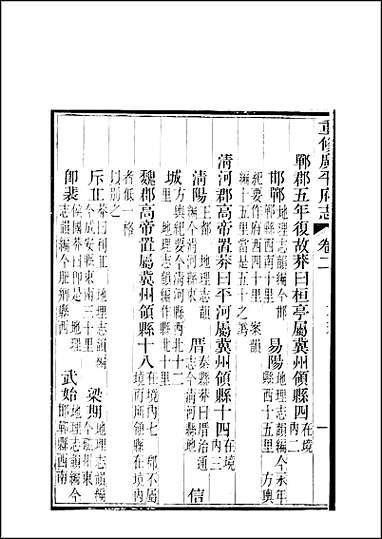 重修廣平府志 卷二
鄲郡五年復故莽曰桓亭屬冀州領縣四在境內二
邯鄲地理志韻編今邯鄲縣西南十里 易陽地理志韻編今永年縣西十五里 方輿
紀要作府西四十里 案韻編十五里當是五十之譌
清河郡高帝置莽曰平河屬冀州領縣十四在境內三
清陽王都 地理志韻編今清河縣東 厝秦縣莽曰厝治 通志今清河縣地 信
城方輿紀要今清河縣西北十二里 地理志韻編作縣北十里
魏郡高帝置屬冀州領縣十八在境內七 鄴不屬境而鄴領縣在境內
者低一格以別之
斥丘莽曰利丘 地理志韻編今成安縣東南三十里 梁期地理志韻編今磁州東
即裴侯國莽曰即是 地理志韻編今肥鄉縣西 武始地理志韻編今邯鄲縣西南